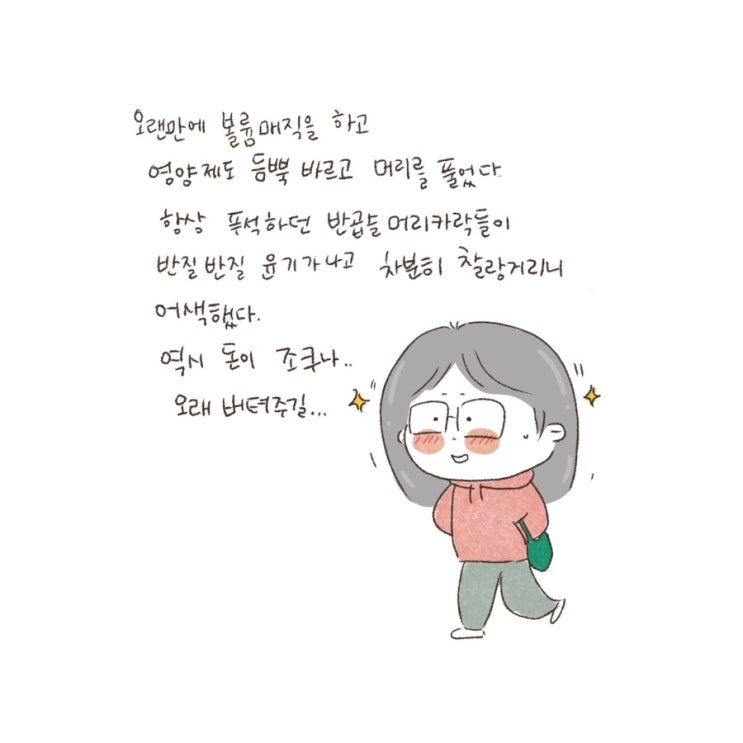 오랜만에 볼륨매직을 하고
영양제도 듬뿍 바르고 머리를 풀었다.
항상 푸석하던 반곱슬 머리카락들이
반질반질 윤기가 나고 차분히 찰랑거리니
어색했다.
역시 돈이 조쿠나..
오래 버텨주길...